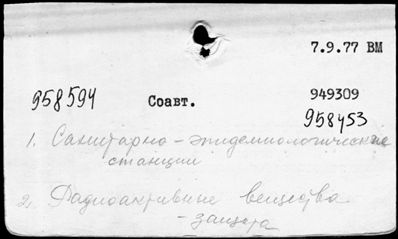 7.9.77 ВМ
958594 Соавт. 949309
958453
1. Санитарно-эпидемиологические
станции
2. Радиоактивные вещества
- защита